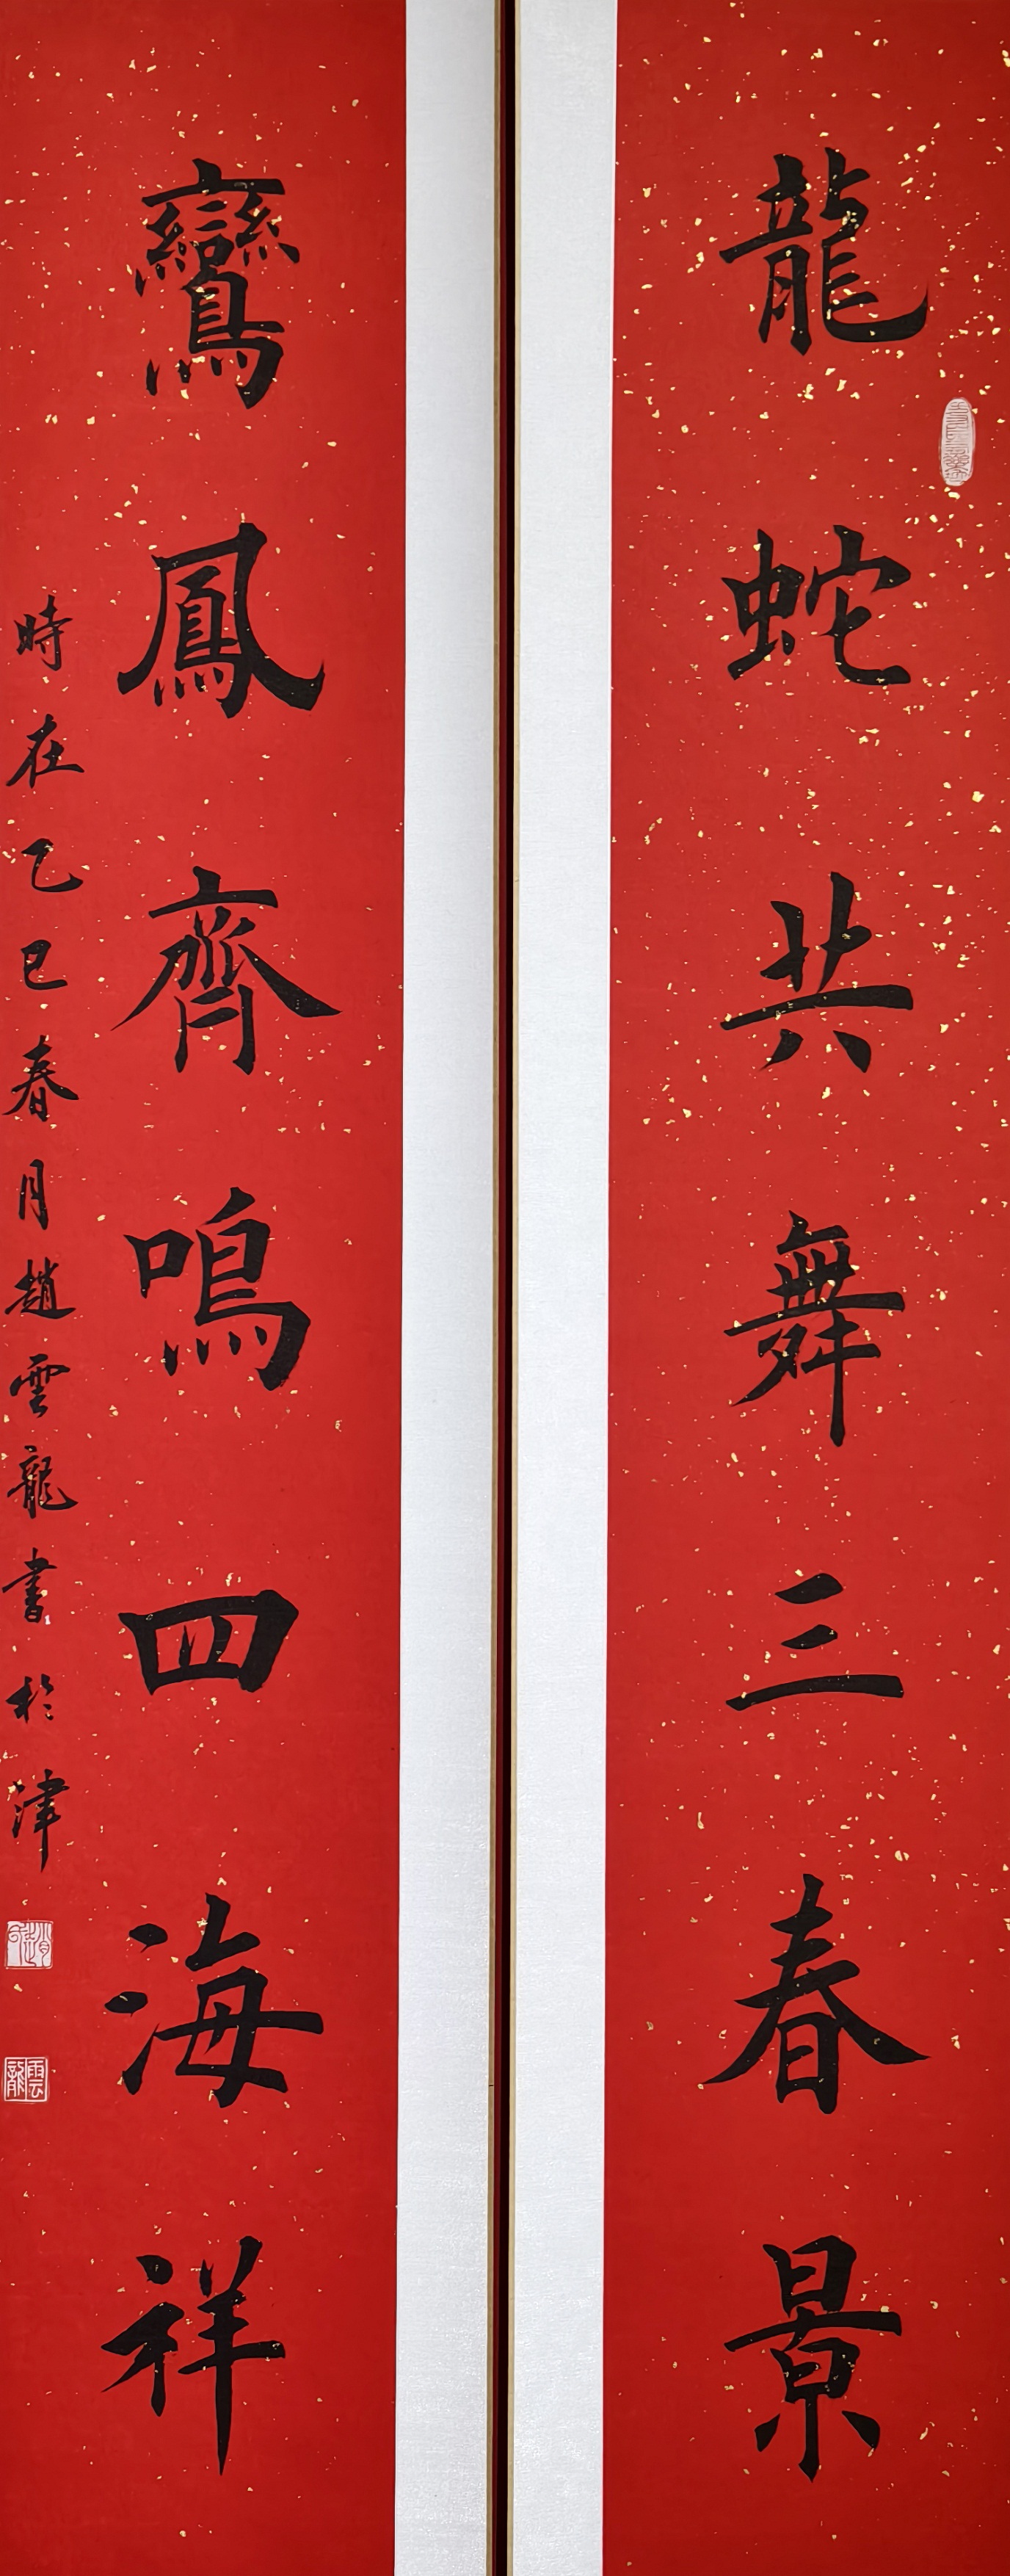 龍蛇共舞三春景
鸞鳳齊鳴四海祥
時在乙巳春月趙雲龍書於津
雲龍